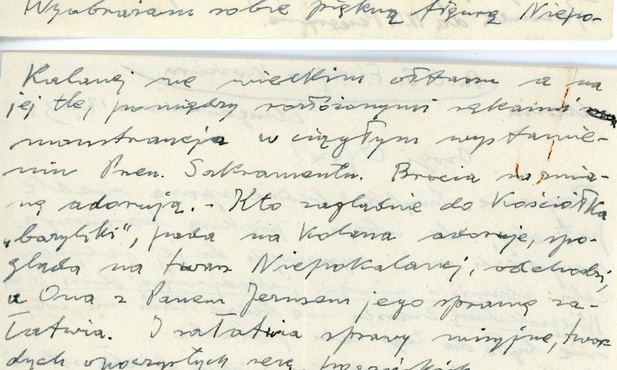 Wyobrażam sobie piękną figurę Niepo-
kalanej we wielkim ołtarzu a na
jej tle, pomiędzy rozłożonymi rękami
monstrancja w ciągłym wystawie-
niu Przen. Sakramentu. Bracia na zmia-
nę adorują. - Kto zaglądnie do kościółka
„bazyliki", pada na kolana adoruje, spo-
gląda na twarz Niepokalanej, odchodzi,
a Ona z Panem Jezusem jego sprawę za-
łatwia. I załatwia sprawy misyjne, twar-
dych opoczystych serc